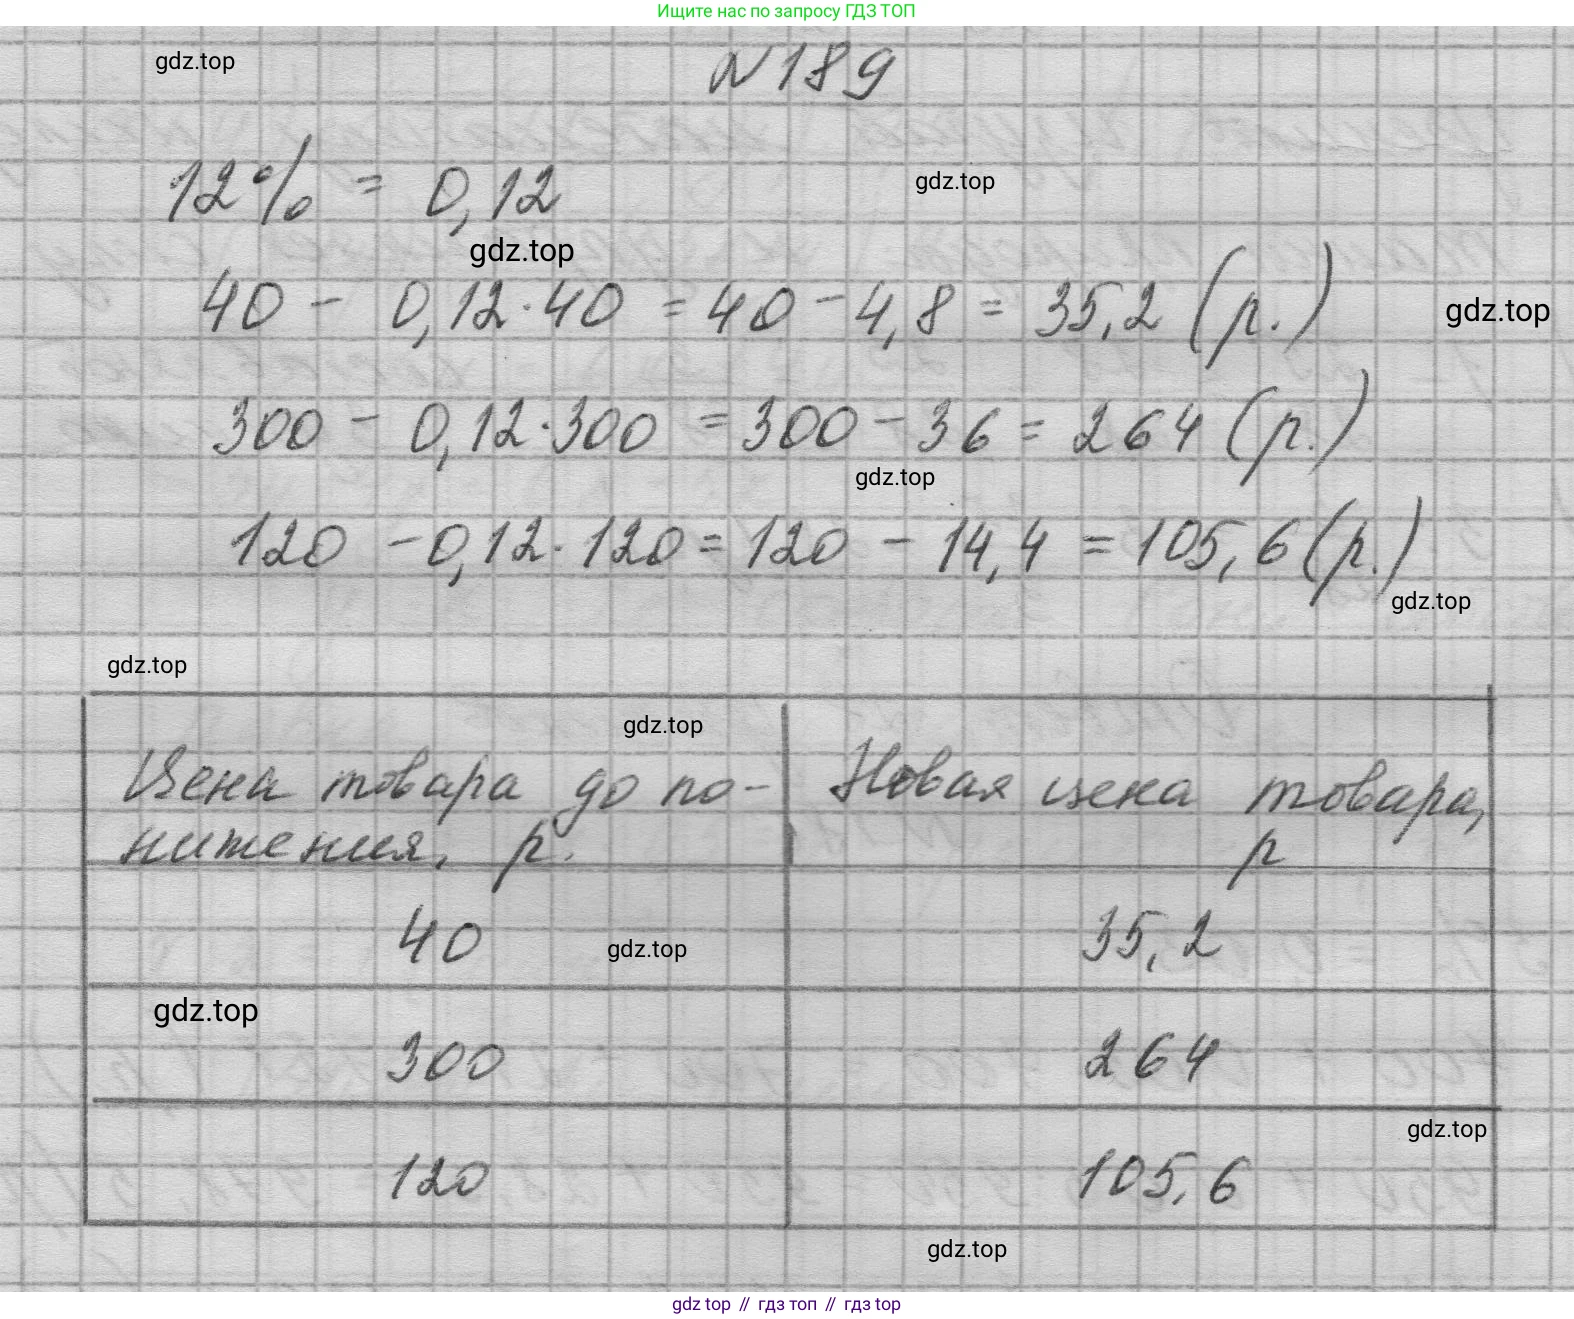 Ищите нас по запросу ГДЗ ТОП
gdz.top
N189
gdz.top
12% = 0,12
gdz.top
40 - 0,12·40 = 40 - 4,8 = 35,2 (р.)
gdz.top
300 - 0,12·300 = 300 - 36 = 264 (р.)
gdz.top
120 - 0,12·120 = 120 - 14,4 = 105,6 (р.)
gdz.top
gdz.top
gdz.top
Цена товара до по-
нижения, р.
Новая цена товара,
р
40
gdz.top
35,2
gdz.top
300
264
gdz.top
120
105,6
gdz.top
gdz top // гдз топ // gdz top